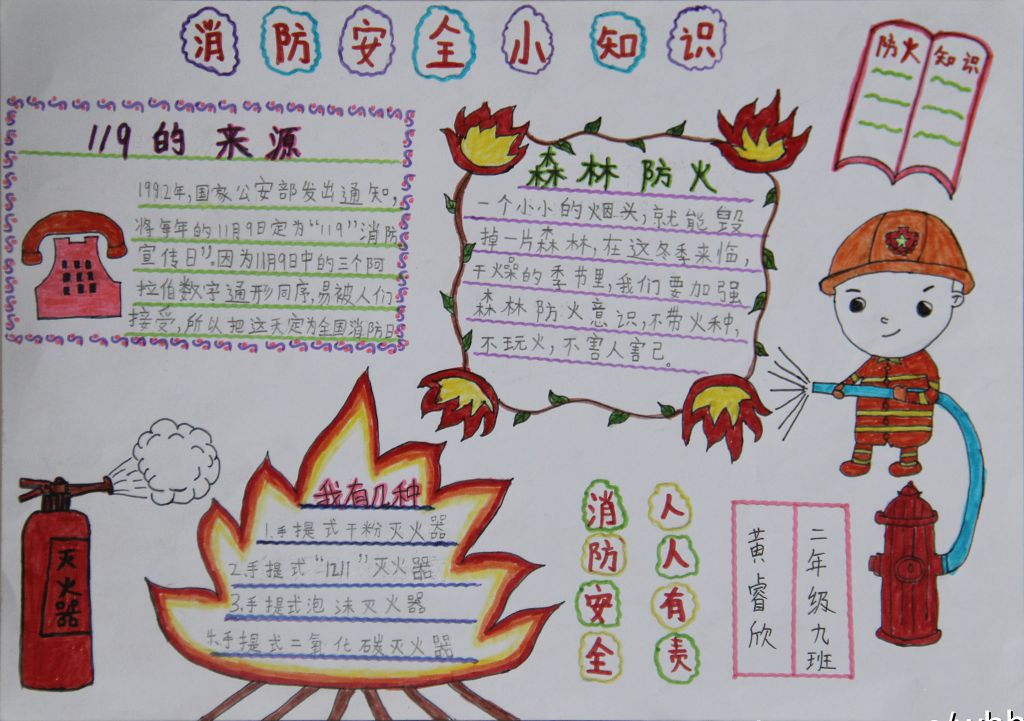 消防安全小知识
防火知识
119的来源
1992年,国家公安部发出通知,
将每年的11月9日定为“119”消防
宣传日”.因为11月9日中的三个阿
拉伯数字通形同序,易被人们
接受,所以把这天定为全国消防日
森林防火
一个小小的烟头,就能毁
掉一片森林,在这冬季来临,
干火燥的季节里,我们要加强
森林防火意识,不带火种,
不玩火,不害人害己。
灭火器
我有几种
1.手提式干粉灭火器
2.手提式“1211”灭火器
3.手提式泡沫灭火器
4.手提式二氧化碳灭火器
消防安全
人人有责
二年级九班
黄睿欣